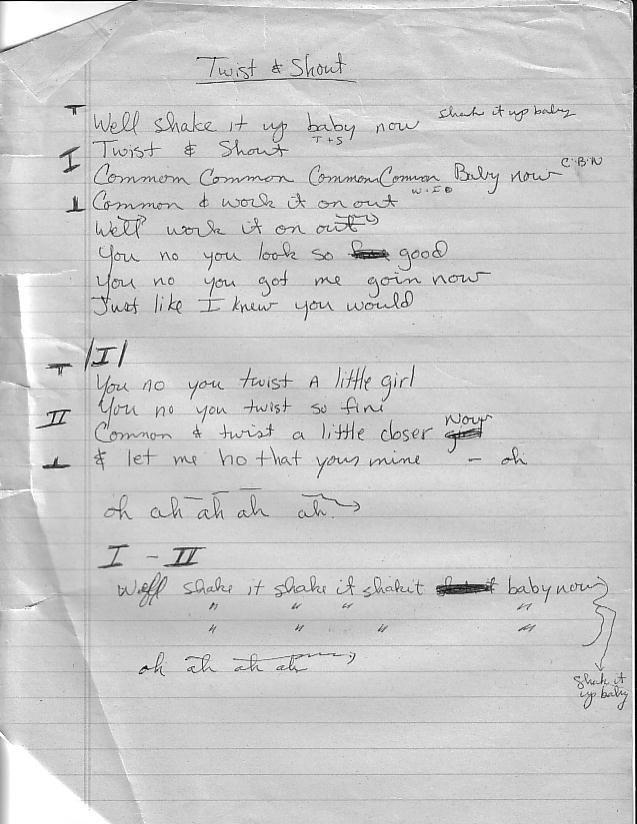 Twist & Shout
Well shake it up baby now shake it up baby
Twist & Shout T+S
I
Commom Common Common Common Baby now C.B.N
Common & work it on out W.I.O
Well work it on out
You no you look so good
You no you got me goin now
Just like I knew you would
I
You no you twist A little girl
You no you twist so fine
II
Common & twist a little closer Now
& let me no that yours mine - oh
oh ah ah ah ah.
I - II
Well shake it shake it shakit baby now
" " " "
" " " "
oh ah ah ah
shak it
up baby